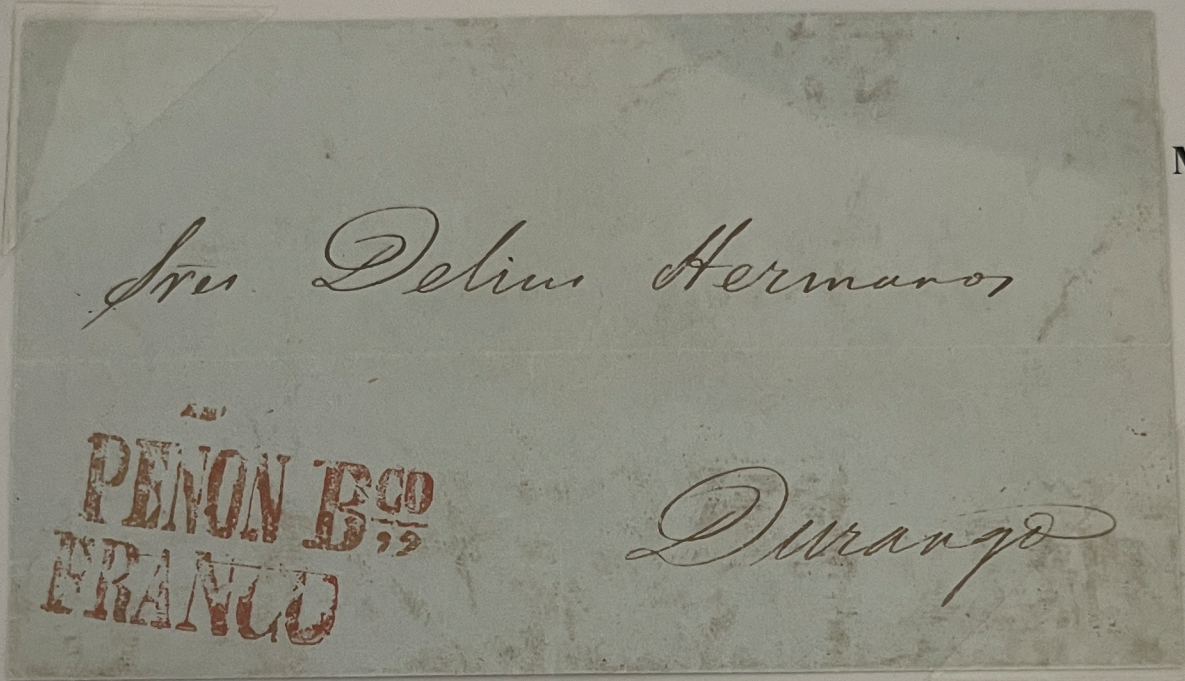 Sres Delius Hermanos
PEÑON Bco
FRANCO
Durango